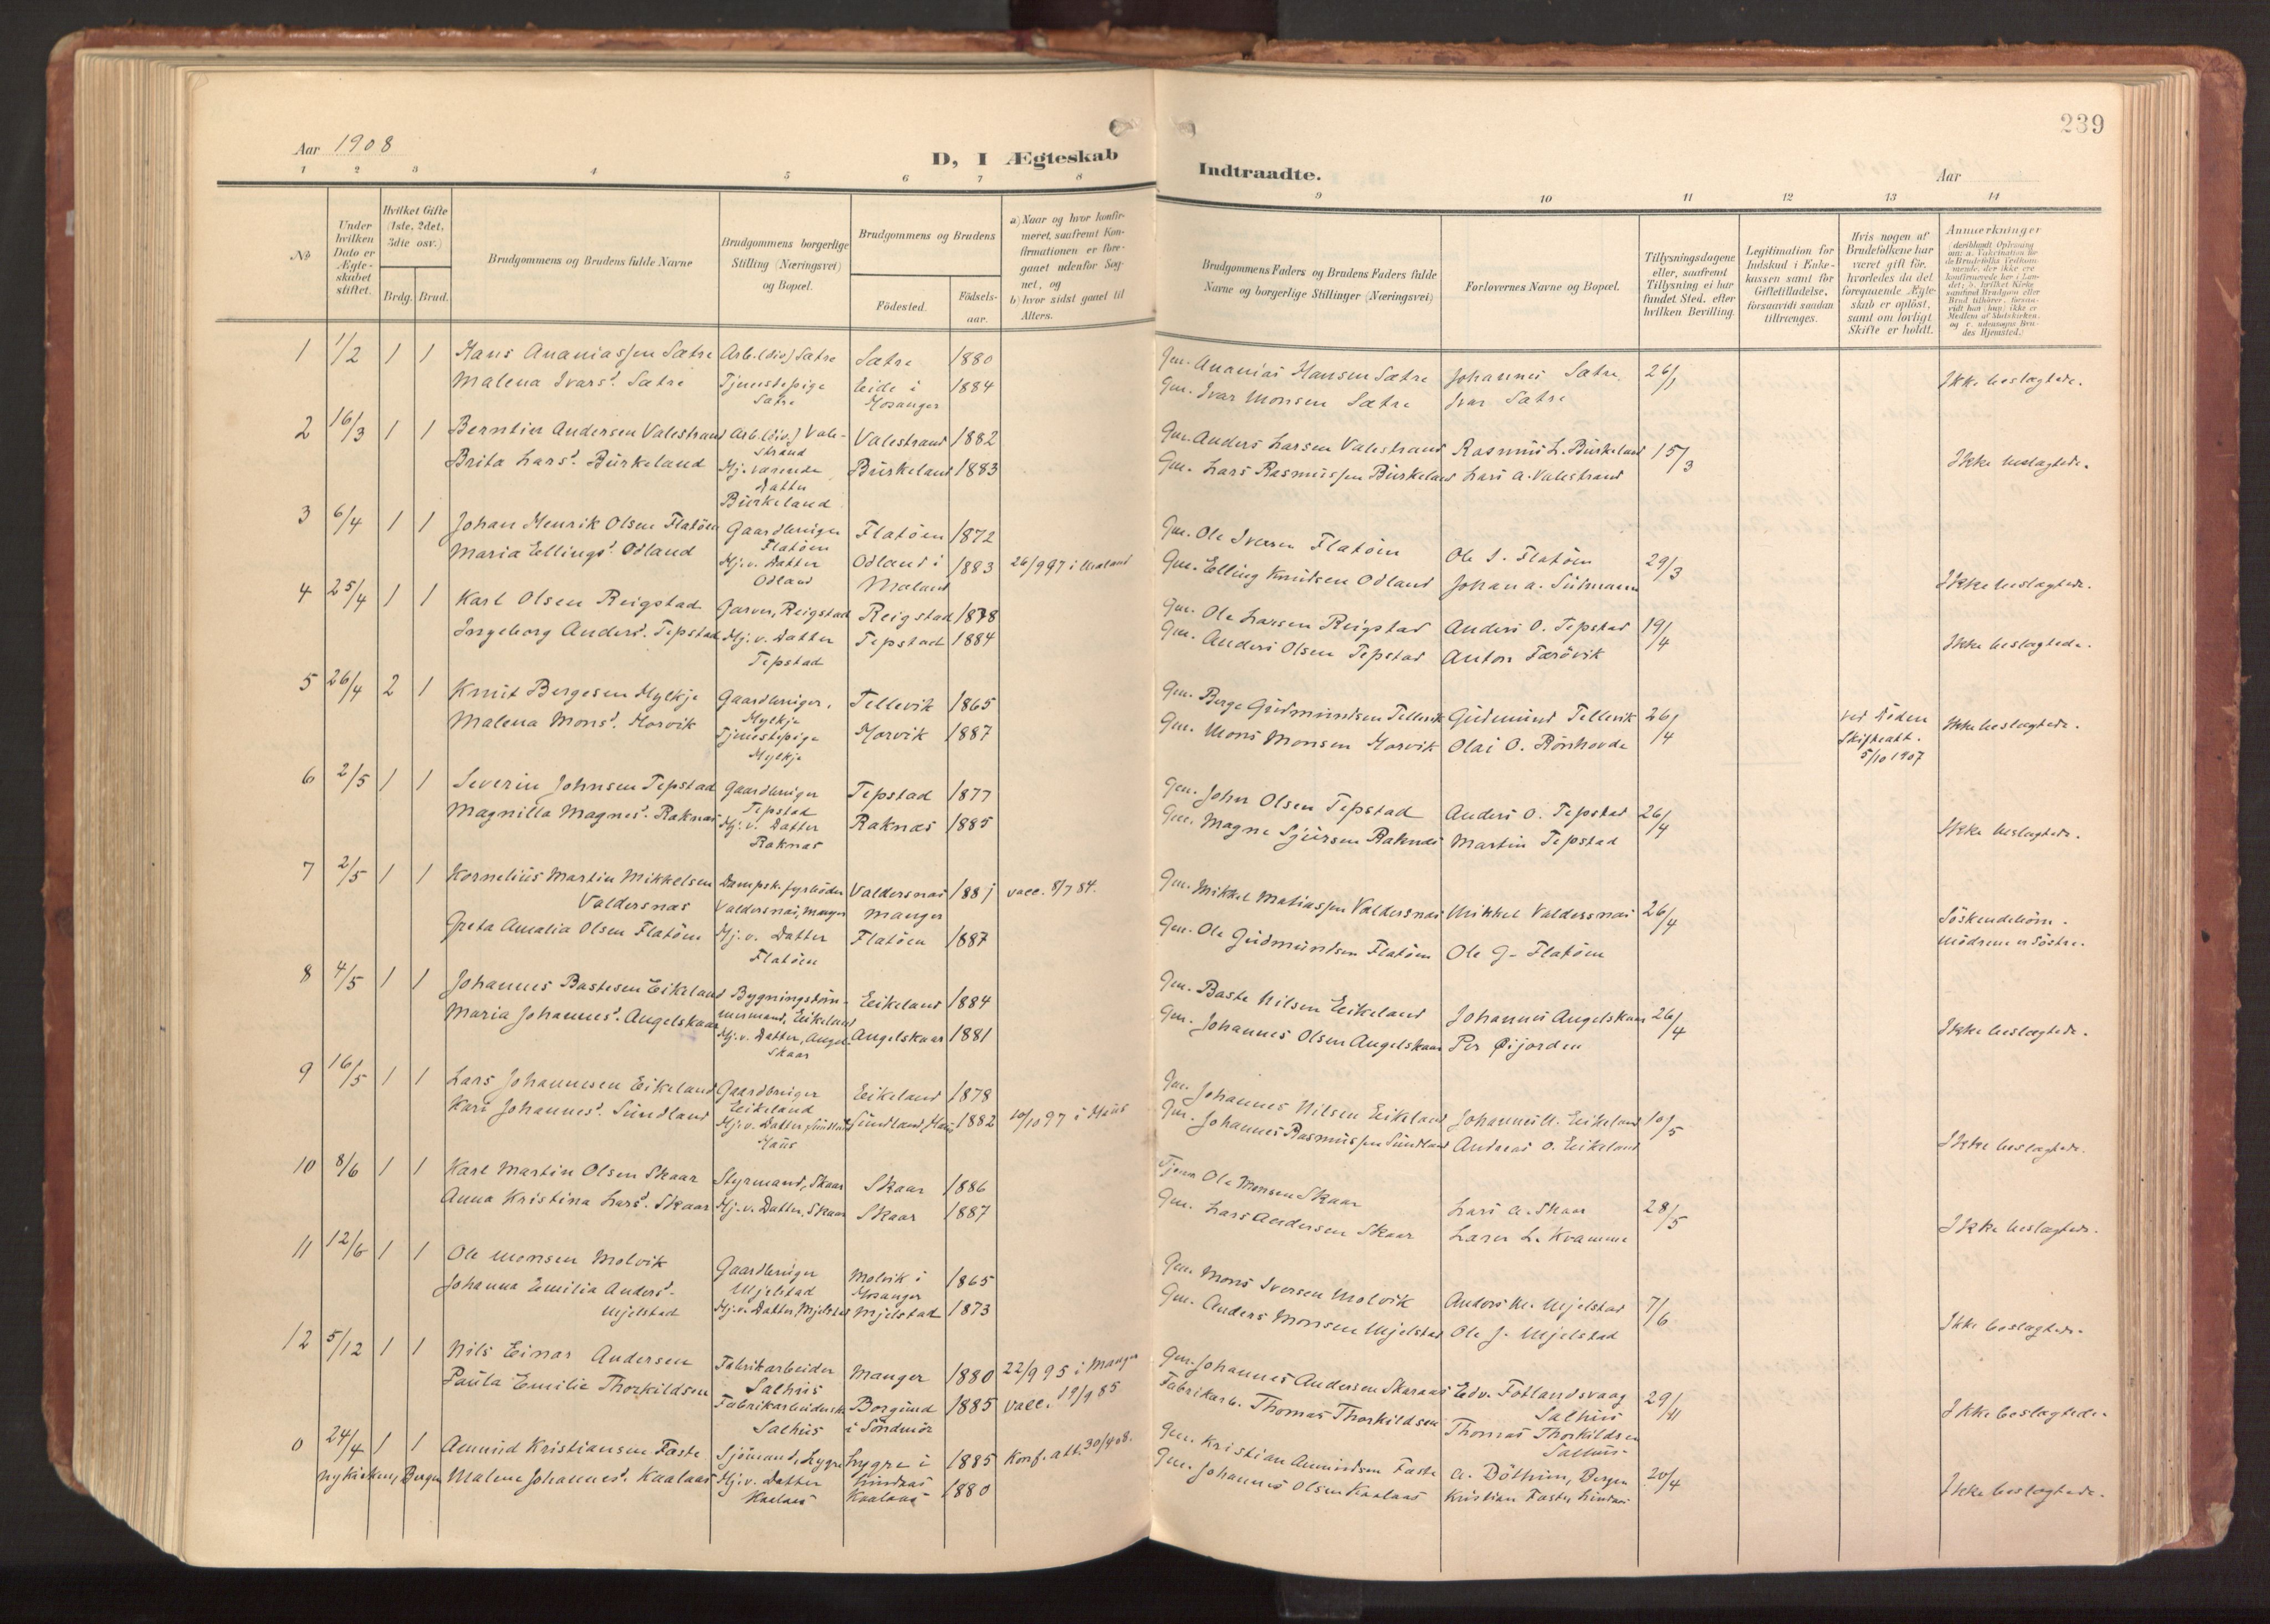 239
Aar 1908
D, I Ægteskab
Indtraadte.
Aar
1 2 3 4 5 6 7 8
9 10 11 12 13 14
No
Under hvilken Dato er Ægteskabet stiftet.
Hvilket Gifte (1ste, 2det, 3die osv.)
Brdg. Brud.
Brudgommens og Brudens fulde Navne
Brudgommens borgerlige Stilling (Næringsvei) og Bopæl.
Brudgommens og Brudens
Födested. Födselsaar.
a) Naar og hvor konfirmeret, saafremt Konfirmationen er foregaaet udenfor Sognet, og
b) hvor sidst gaaet til Alters.
Brudgommens Faders og Brudens Faders fulde Navne og borgerlige Stillinger (Næringsvei)
Forlovernes Navne og Bopæl.
Tillysningsdagene eller, saafremt Tillysning ei har fundet Sted, efter hvilken Bevilling.
Legitimation for Indskud i Enkekassen samt for Giftetilladelse, forsaavidt saadan tiltrænges.
Hvis nogen af Brudefolkene har været gift för, hvorledes da det foregaaende Ægteskab er oplöst, samt om lovligt Skifte er holdt.
Anmerkninger
1 1/2 1 1 Hans Ananiassen Sætre Arb. (div) Sætre Sætre 1880 Gm. Ananias Hansen Sætre Johannes Sætre 26/1
Malena Ivarsd. Sætre Tjenestepige Sætre Eide i Hosanger 1884 Gm. Ivar Monsen Sætre Ivar Sætre Ikke beslægtede.
2 16/3 1 1 Berntin Andersen Valestrand Arb. (div) Valestrand Valestrand 1882 Gm. Anders Larsen Valestrand Rasmus L. Burkeland 15/3
Brita Larsd. Burkeland Hj. værende Datter Burkeland Burkeland 1883 Gm. Lars Rasmussen Burkeland Lars A. Valestrand Ikke beslægtede.
3 6/4 1 1 Johan Henrik Olsen Flatöen Gaardbruger Flatöen Flatöen 1872 Gm. Ole Iversen Flatöen Ole I. Flatöen 29/3
Maria Ellingsd. Odland Hj. v. Datter Odland Odland i Maland 1883 26/9 97 i Maland Gm. Elling Knutsen Odland Johan A. Ikke beslægtede.
4 25/4 1 1 Karl Olsen Reigstad Garver, Reigstad Reigstad 1878 Gm. Ole Larsen Reigstad Anders O. Tepstad 19/4
Ingeborg Andersd. Tepstad Hj. v. Datter Tepstad Tepstad 1884 Gm. Anders Olsen Tepstad Anton Færövik Ikke beslægtede.
5 26/4 2 1 Knut Bergesen Hylkje Gaardbruger, Hylkje Tellevik 1865 Gm. Berge Gudmundsen Tellevik Gudmund Tellevik 26/4 ved Döden Skifteatt. 5/10 1907
Malena Monsd. Horvik Tjenestepige Hylkje Horvik 1887 Gm. Mons Monsen Horvik Olai O. Rönhovde Ikke beslægtede.
6 2/5 1 1 Severin Johnsen Tepstad Gaardbruger Tepstad Tepstad 1877 Gm. John Olsen Tepstad Anders O. Tepstad 26/4
Magnilla Magnesd. Raknæs Hj. v. Datter Raknæs Raknæs 1885 Gm. Magne Sjursen Raknæs Martin Tepstad Ikke beslægtede.
7 2/5 1 1 Kornelius Martin Mikkelsen Valdersnæs Dampsk. fyrböder Valdersnæs, Manger Valdersnæs Manger 1881 vacc. 8/7 84. Gm. Mikkel Matiassen Valdersnæs Mikkel Valdersnæs 26/4
Greta Amalia Olsen Flatöen Hj. v. Datter Flatöen Flatöen 1887 Gm. Ole Gudmundsen Flatöen Ole G. Flatöen Söskendebörn. Mödrene er Söstre.
8 4/5 1 1 Johannes Bastesen Eikeland Bygningstömmermand, Eikeland Eikeland 1884 Gm. Baste Nilsen Eikeland Johannes Angelskaar 26/4
Maria Johannesd. Angelskaar Hj. v. Datter, Angelskaar Angelskaar 1881 Gm. Johannes Olsen Angelskaar Per Öijorden Ikke beslægtede.
9 16/5 1 1 Lars Johannesen Eikeland Gaardbruger Eikeland Eikeland 1878 Gm. Johannes Nilsen Eikeland Johannes N. Eikeland 10/5
Kari Johannesd. Sundland Hj. v. Datter, Sundland Haus Sundland, Haus 1882 10/10 97 i Haus Gm. Johannes Rasmussen Sundland Andreas O. Eikeland Ikke beslægtede.
10 8/6 1 1 Karl Martin Olsen Skaar Styrmand, Skaar Skaar 1886 Ole Monsen Skaar Lars A. Skaar 28/5
Anna Kristina Larsd. Skaar Hj. v. Datter, Skaar Skaar 1887 Gm. Lars Andersen Skaar Lars L. Kvamme Ikke beslægtede.
11 12/6 1 1 Ole Monsen Molvik Gaardbruger Mjelstad Molvik i Hosanger 1865 Gm. Mons Iversen Molvik Anders M. Mjelstad 7/6
Johanna Emilia Andersd. Mjelstad Hj. v. Datter, Mjelstad Mjelstad 1873 Gm. Anders Monsen Mjelstad Ole J. Mjelstad Ikke beslægtede.
12 5/12 1 1 Nils Einar Andersen Fabrikarbeider Salhus Manger 1880 22/9 95 i Manger Gm. Johannes Andersen Skaraas Edv. Fotlandsvaag Salhus 29/11
Paula Emilie Thorkildsen Fabrikarbeiderske Salhus Borgund i Söndmör 1885 vacc. 19/9 85 Fabrikarb. Thomas Thorkildsen Thomas Thorkildsen Salhus Ikke beslægtede.
0 24/4 1 1 Amund Kristiansen Faste Sjömand, Lygre Lygre i Lindaas 1885 Konf. att. 30/4 08. Gm. Kristian Amundsen Faste A. Böthun, Bergen 20/4
Nykirken, Bergen Malene Johannesd. Kaalaas Hj. v. Datter Kaalaas Kaalaas 1880 Gm. Johannes Olsen Kaalaas Kristian Faste, Lindaas Ikke beslægtede.